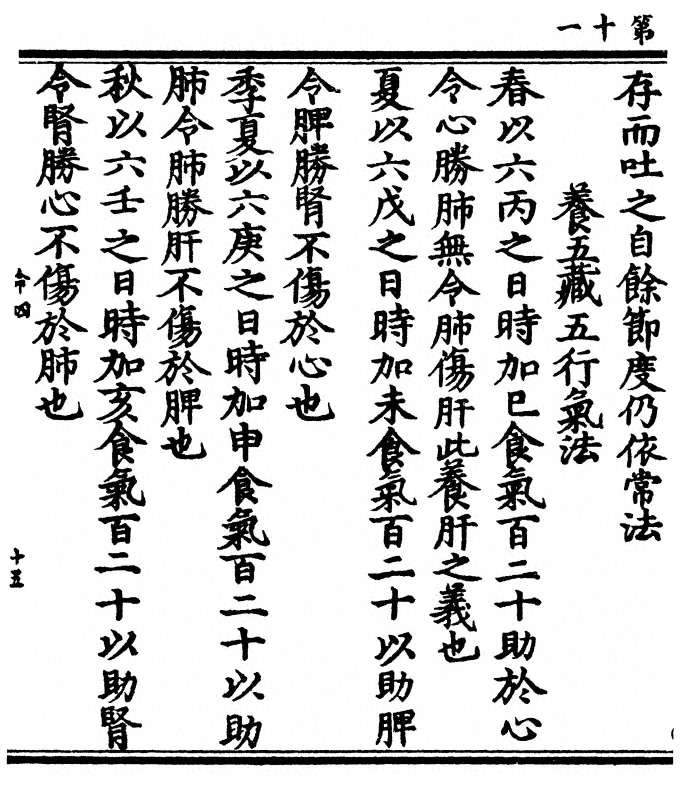 第十一
存而吐之自餘節度仍依常法
養五藏五行氣法
春以六丙之日時加巳食氣百二十助於心
令心勝肺無令肺傷肝此養肝之義也
夏以六戊之日時加未食氣百二十以助脾
令脾勝腎不傷於心也
季夏以六庚之日時加申食氣百二十以助
肺令肺勝肝不傷於脾也
秋以六壬之日時加亥食氣百二十以助腎
令腎勝心不傷於肺也
命四
十五